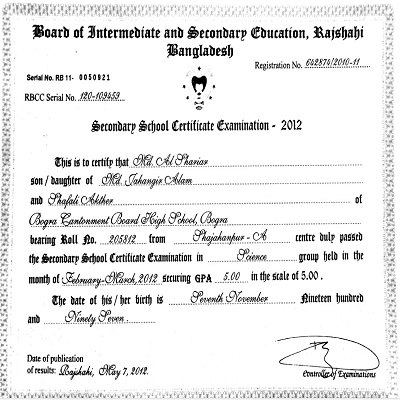 Board of Intermediate and Secondary Education, Rajshahi
Bangladesh
Registration No. 642874/2010-11
Serial No. RB 11- 0050921
RBCC Serial No. 120-109459
Secondary School Certificate Examination - 2012
This is to certify that Md. Al Shariar
son / daughter of Md. Jahangir Alam
and Shafali Akther of
Bogra Cantonment Board High School, Bogra
bearing Roll No. 205812 from Shajahanpur - A centre duly passed
the Secondary School Certificate Examination in Science group held in the
month of February-March, 2012 securing GPA 5.00 in the scale of 5.00 .
The date of his / her birth is Seventh November Nineteen hundred
and Ninety Seven.
Date of publication
of results: Rajshahi, May 7, 2012.
Controller of Examinations